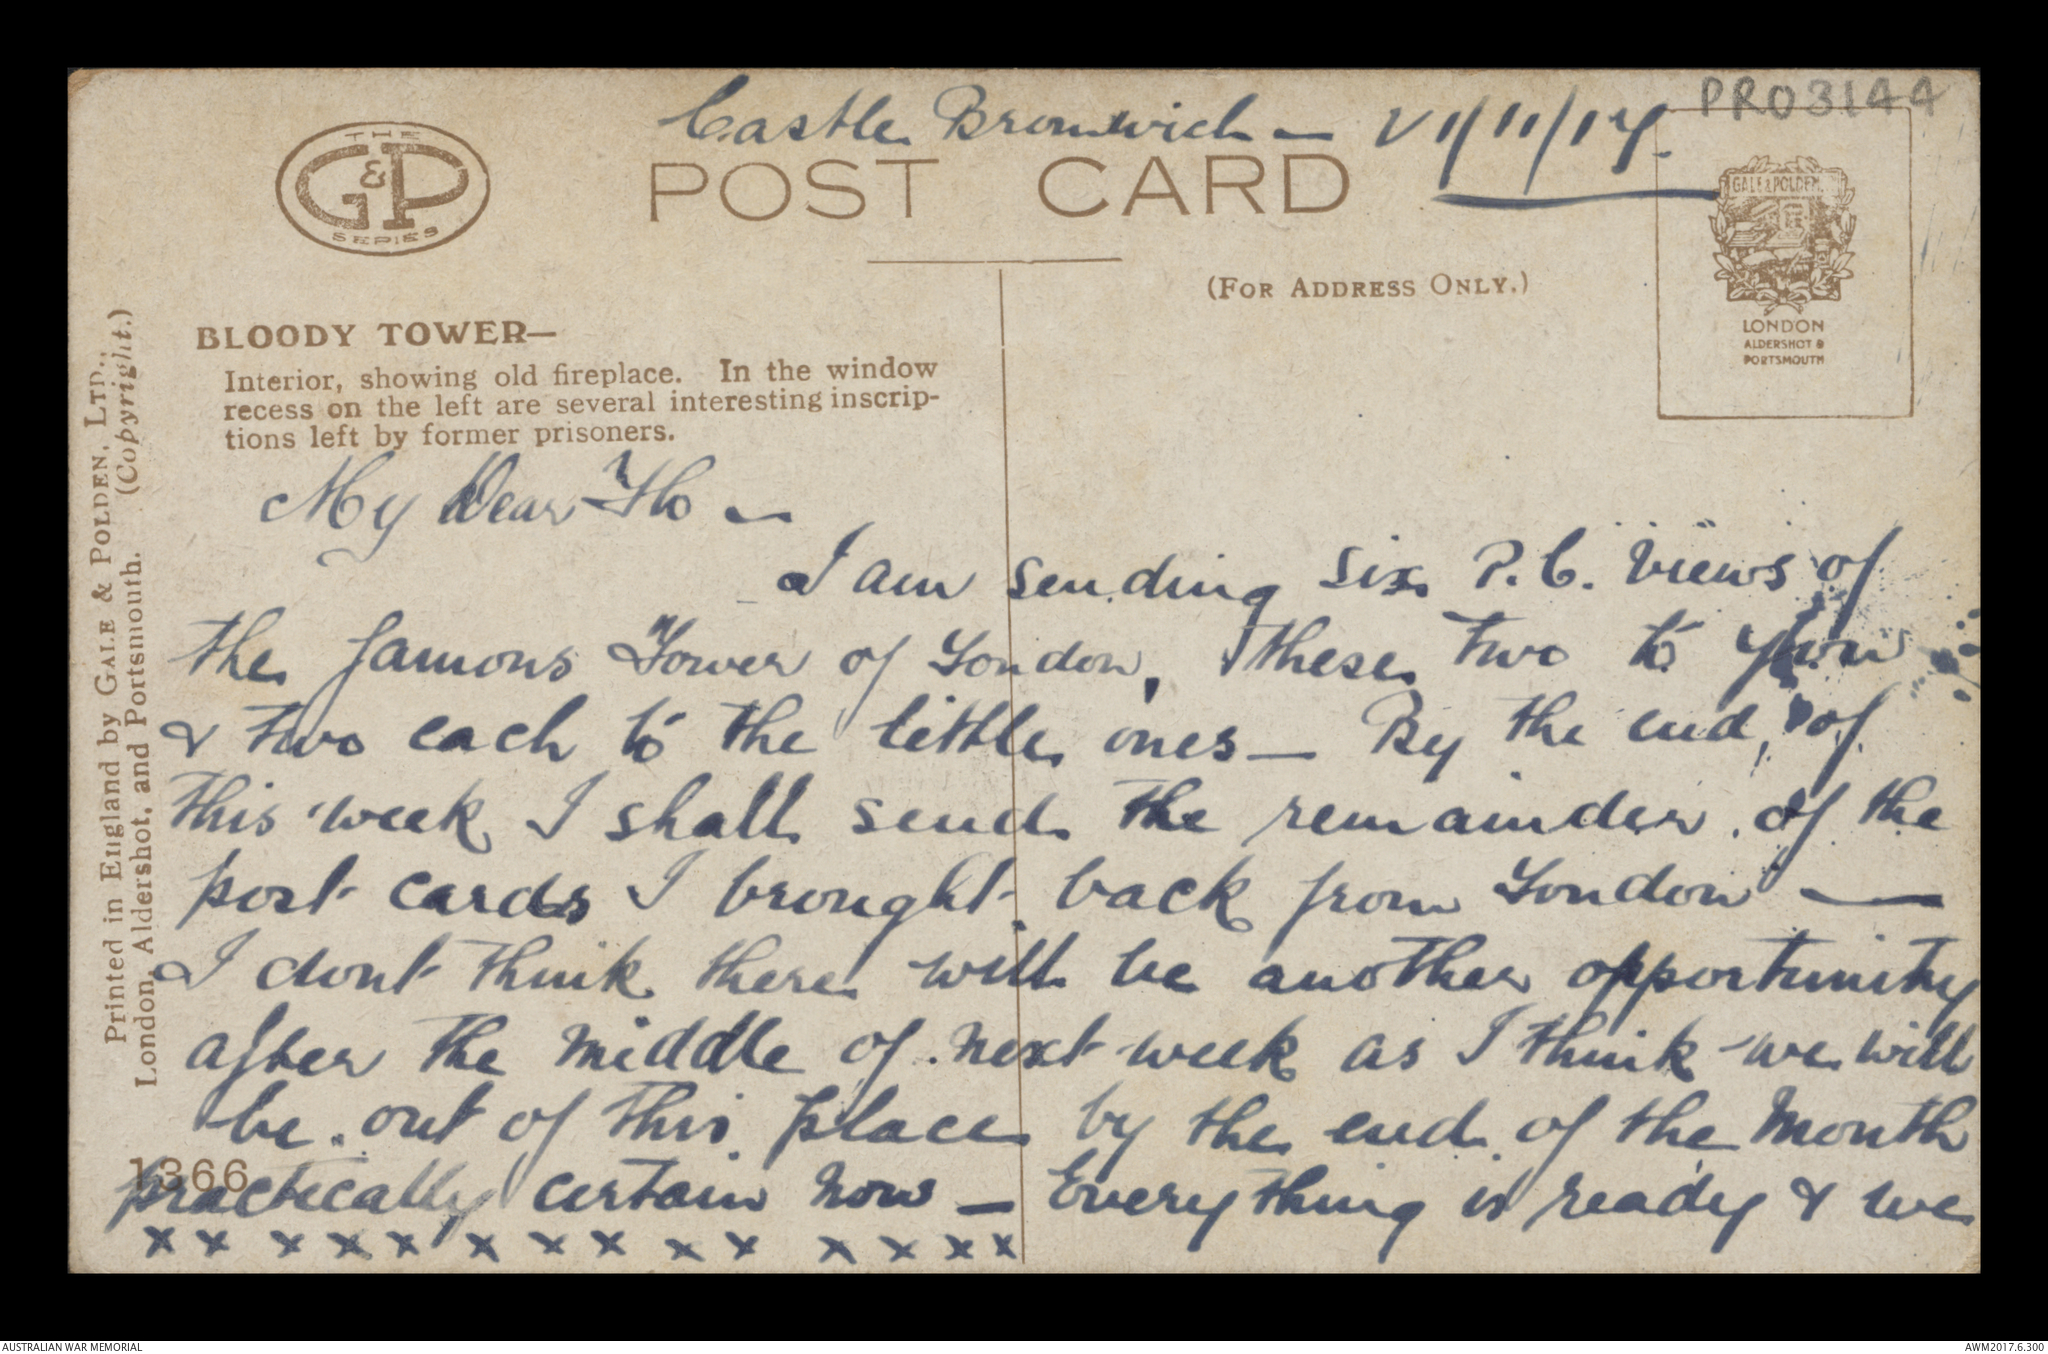 Castle Bromwich — 21/11/17.
PR03144
THE
G&P
SERIES
POST CARD
GALE & POLDEN
LONDON
ALDERSHOT &
PORTSMOUTH
(FOR ADDRESS ONLY.)
BLOODY TOWER—
Interior, showing old fireplace. In the window
recess on the left are several interesting inscrip-
tions left by former prisoners.
Printed in England by GALE & POLDEN, LTD.,
London, Aldershot, and Portsmouth. (Copyright.)
My Dear Flo —
I am sending six P.C. views of
the famous Tower of London, these two to you
& two each to the little ones — By the end, of
this week I shall send the remainder of the
post cards I brought back from London —
I dont think there will be another opportunity
after the middle of next week as I think we will
be out of this place by the end of the Month
practically certain now — Everything is ready & we
1366
x x x x x x x x x x x x x x
AUSTRALIAN WAR MEMORIAL
AWM2017.6.300